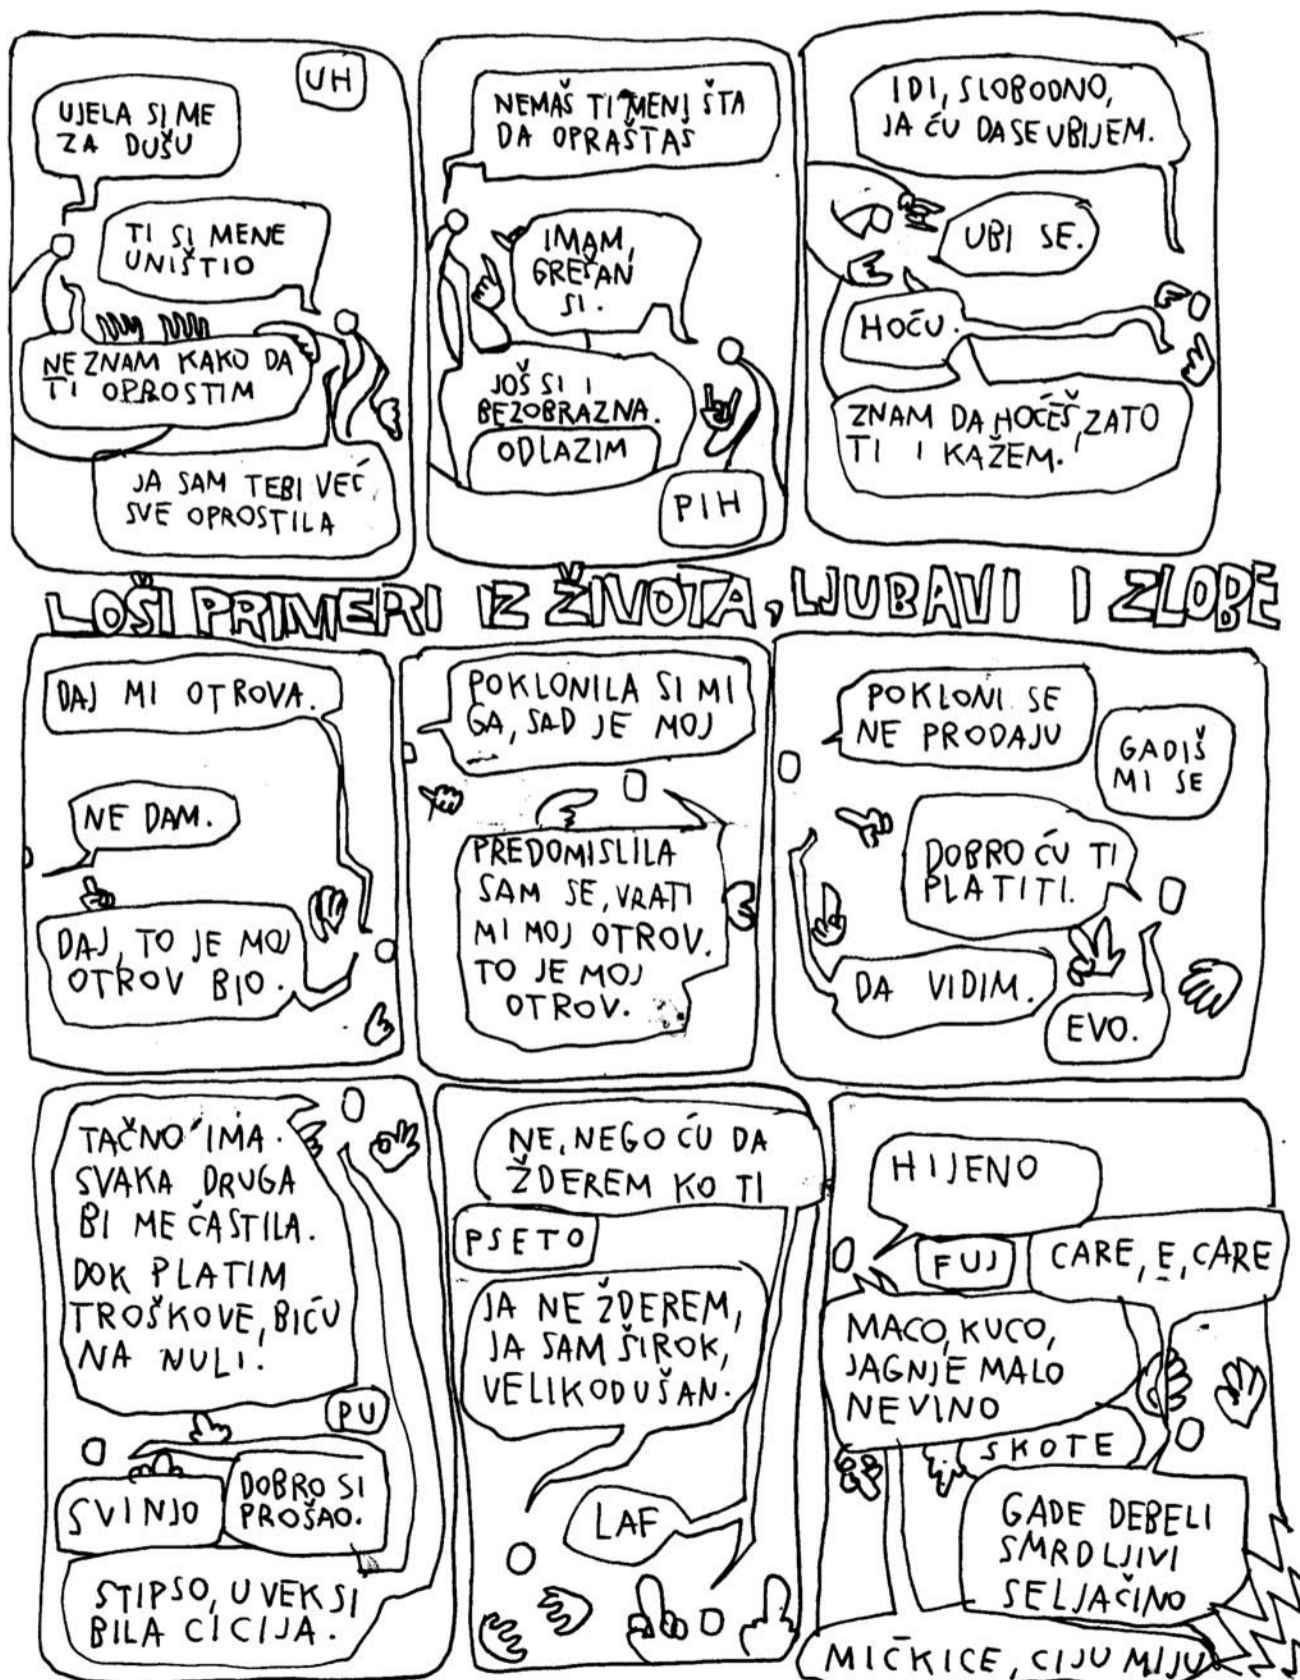 UH
UJELA SI ME
ZA DUŠU
TI SI MENE
UNIŠTIO
NE ZNAM KAKO DA
TI OPROSTIM
JA SAM TEBI VEĆ
SVE OPROSTILA
NEMAŠ TI MENI ŠTA
DA OPRAŠTAŠ
IMAM,
GREŠAN
SI.
JOŠ SI I
BEZOBRAZNA.
ODLAZIM
PIH
IDI, SLOBODNO,
JA ĆU DA SE UBIJEM.
UBI SE.
HOĆU.
ZNAM DA HOĆEŠ, ZATO
TI I KAŽEM.
LOŠI PRIMERI IZ ŽIVOTA, LJUBAVI I ZLOBE
DAJ MI OTROVA.
NE DAM.
DAJ, TO JE MOJ
OTROV BIO.
POKLONILA SI MI
GA, SAD JE MOJ
PREDOMISLILA
SAM SE, VRATI
MI MOJ OTROV.
TO JE MOJ
OTROV.
POKLONI SE
NE PRODAJU
GADIŠ
MI SE
DOBRO ĆU TI
PLATITI.
DA VIDIM.
EVO.
TAČNO IMA.
SVAKA DRUGA
BI ME ČASTILA.
DOK PLATIM
TROŠKOVE, BIĆU
NA NULI.
PU
SVINJO
DOBRO SI
PROŠAO.
STIPSO, UVEK SI
BILA CICIJA.
NE, NEGO ĆU DA
ŽDEREM KO TI
PSETO
JA NE ŽDEREM,
JA SAM ŠIROK,
VELIKODUŠAN.
LAF
HIJENO
FUJ
CARE, E, CARE
MACO, KUCO,
JAGNJE MALO
NEVINO
SKOTE
GADE DEBELI
SMRDLJIVI
SELJAČINO
MIČKICE, CIJU MIJU